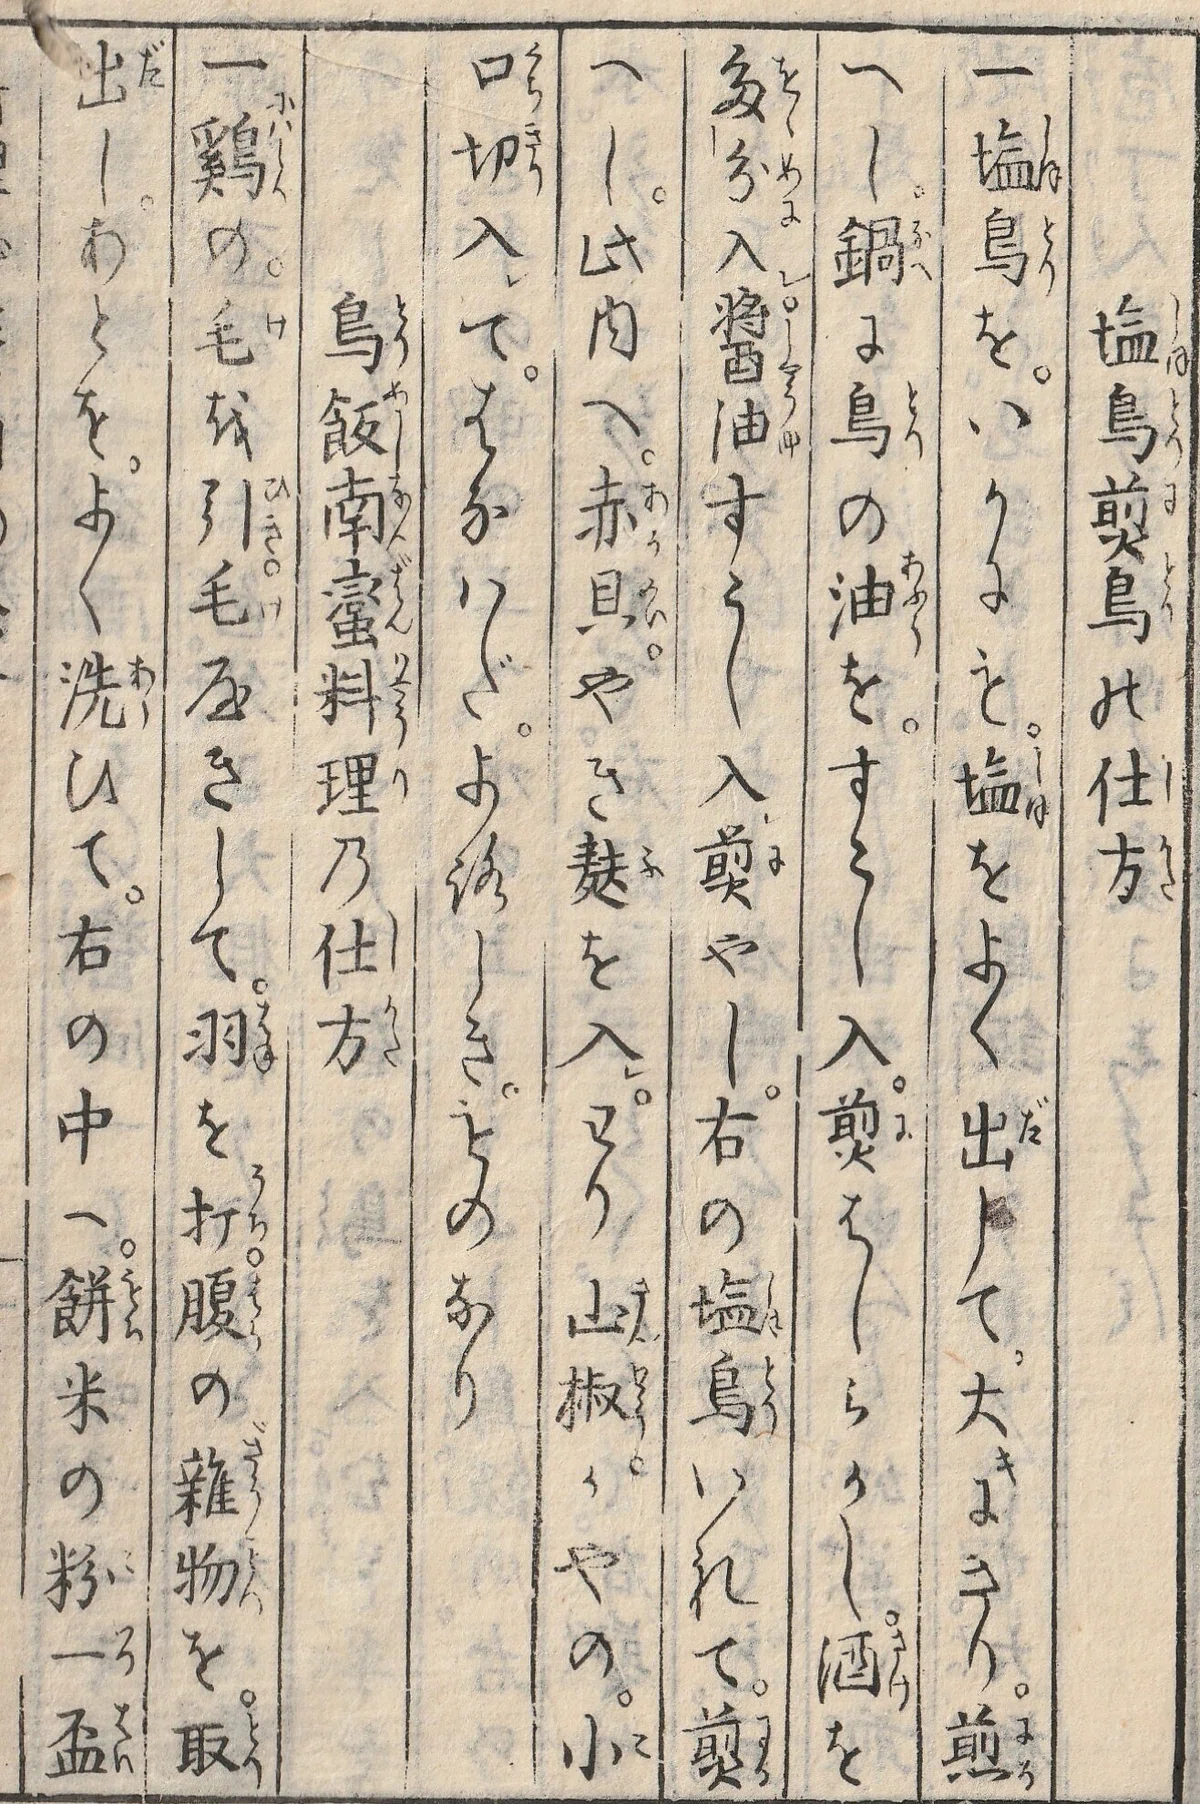 塩鳥煎鳥の仕方
一塩鳥を。いかにも。塩をよく出して。大きにきり。煎
へし。鍋に鳥の油を。すこし入。煎はしらかし。酒を
多分入。醤油すこし入煎やし。右の塩鳥いれて。煎
へし。此内へ。赤貝。やき麩を入。わり山椒。かやの。小
口切入て。はなハだ。よ路しき。ものなり
鳥飯南蛮料理乃仕方
一鶏の。毛越引。毛屋きして。羽を打。腹の雑物を。取
出し。あとを。よく洗ひて。右の中へ。餅米の粉一盃